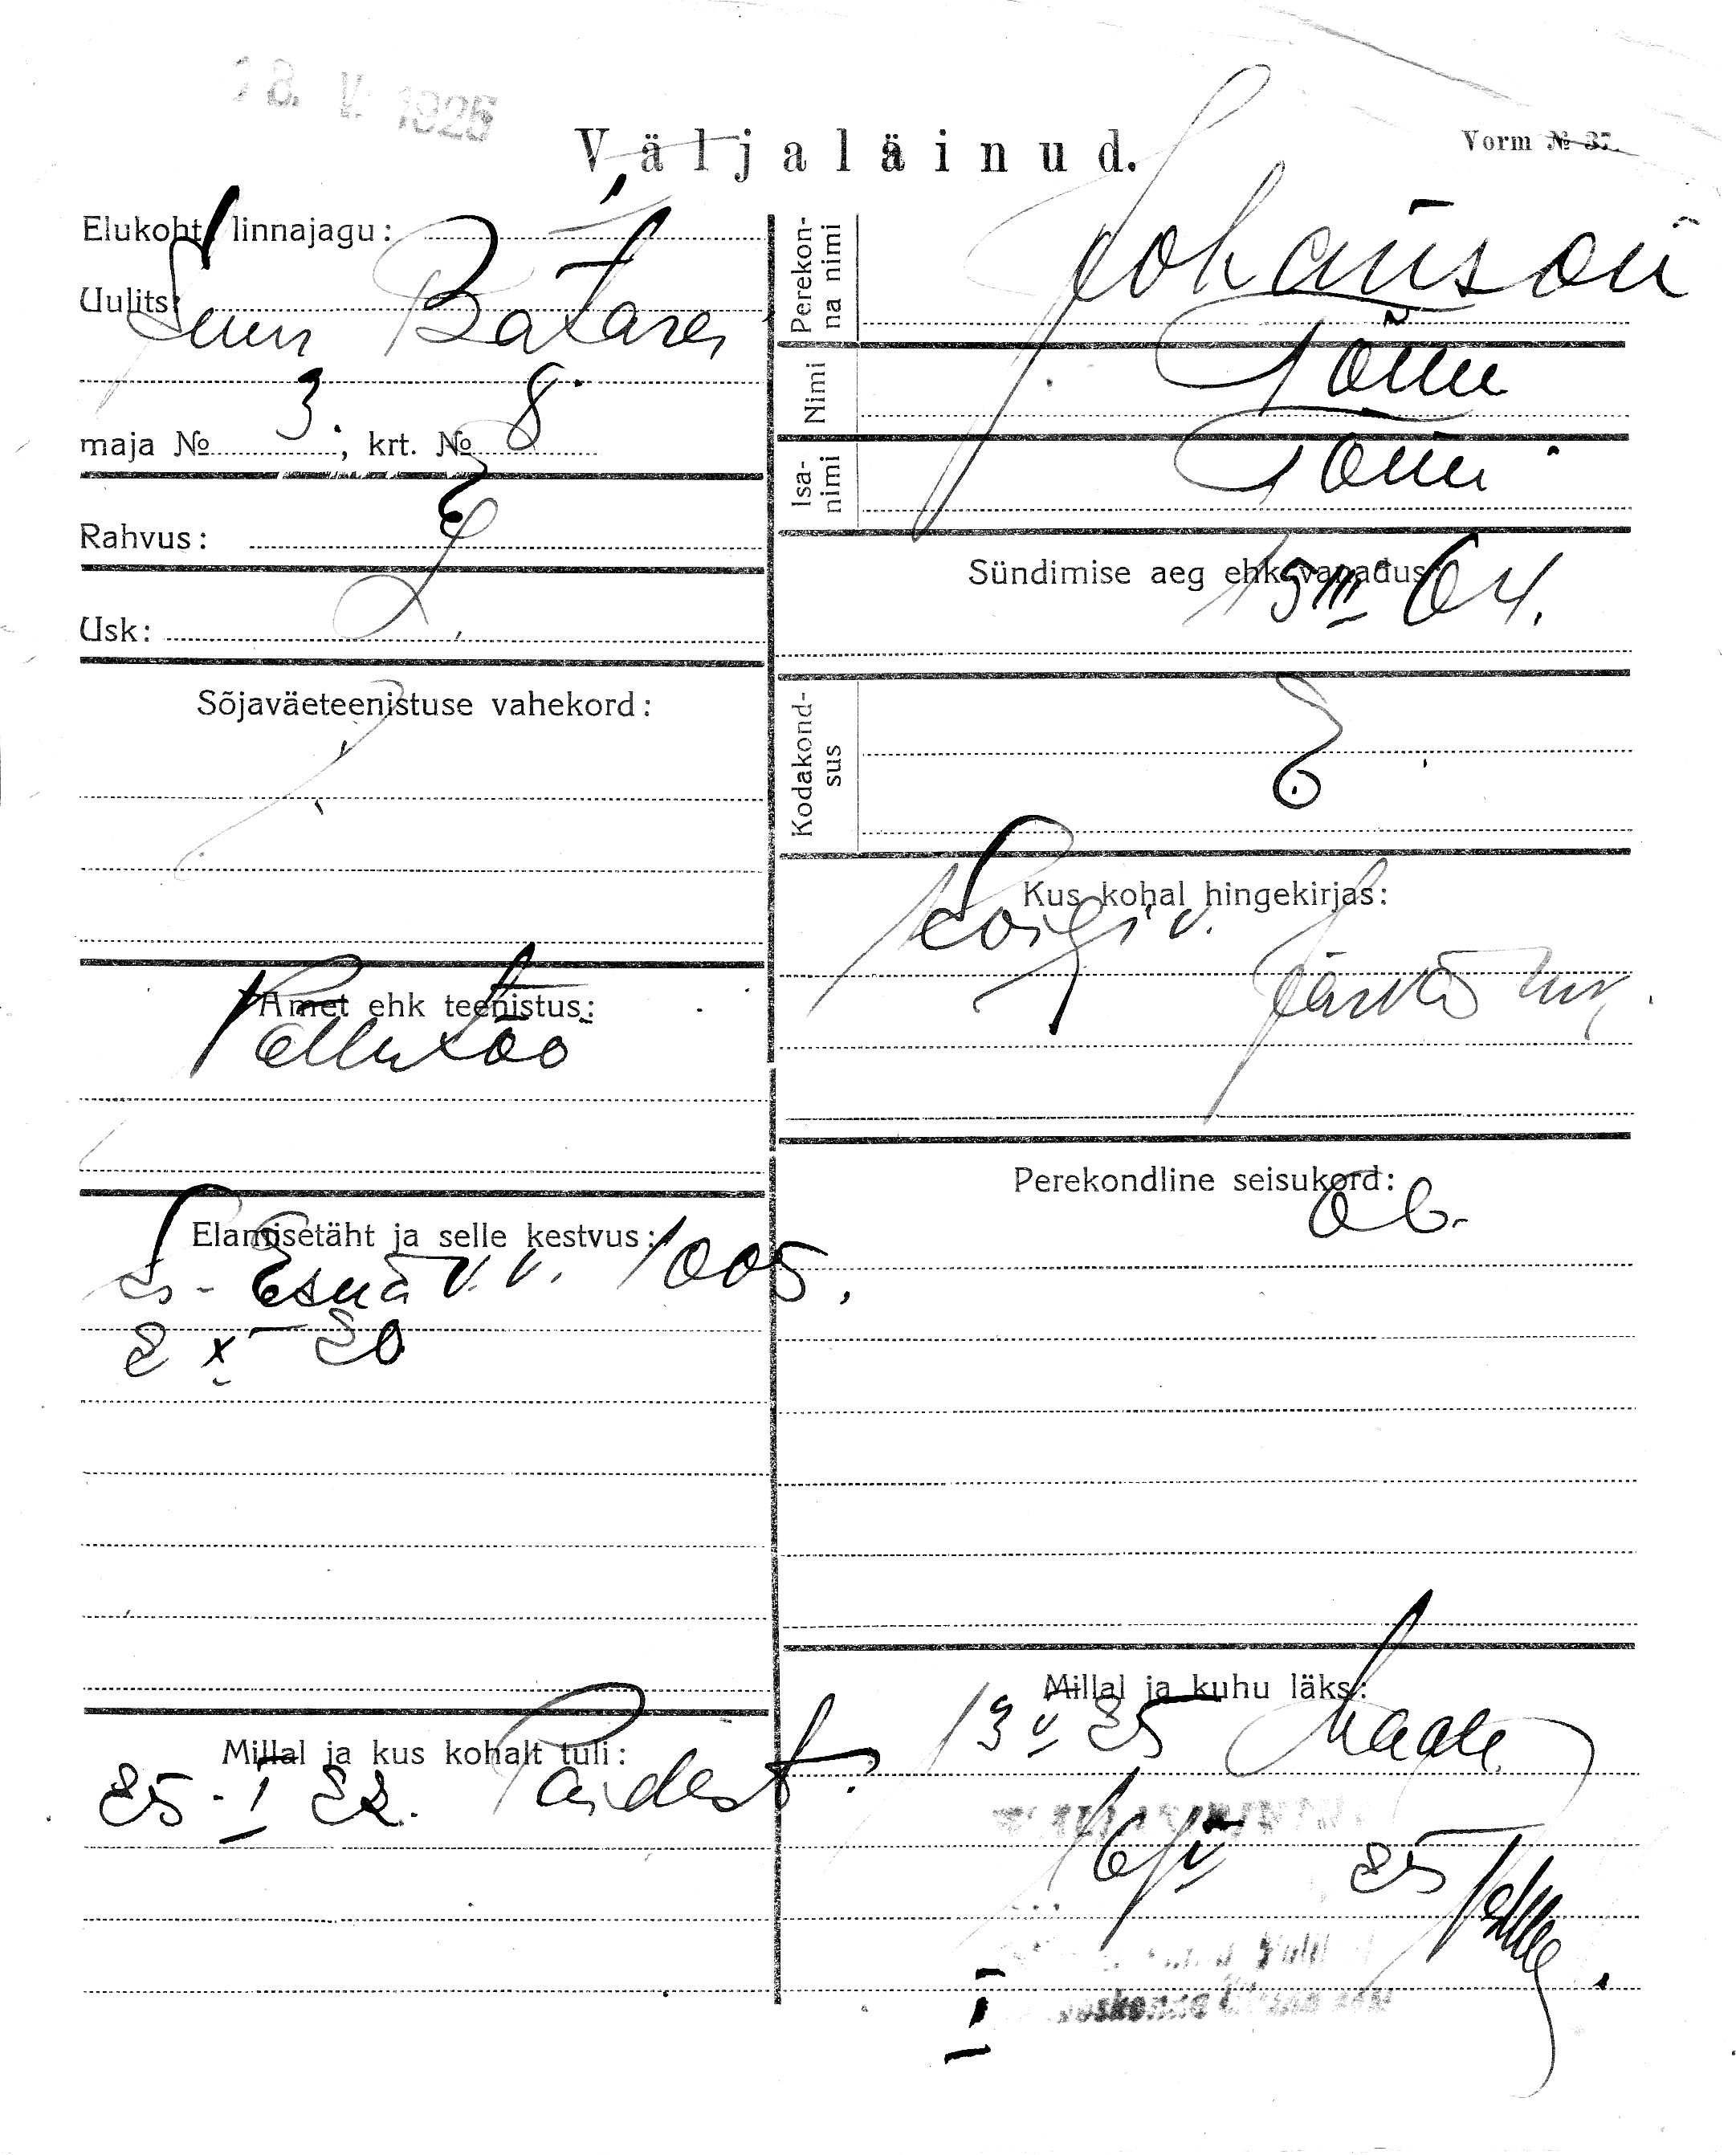 18. V. 1925
Väljaläinud.
Vorm № 37.
Elukoht, linnajagu: I
Uulits: Suur Batarei
maja № 3; krt. № 8.
Rahvus: E
Usk: L
Sõjaväeteenistuse vahekord:
Amet ehk teenistus:
Põllutöö
Elamisetäht ja selle kestvus:
Is - Esna v. v. 1005,
2 X 20
Millal ja kus kohalt tuli:
25 - I 22. Paidest.
Perekonna nimi Johanson
Nimi Tõnu
Isanimi Tõnu
Sündimise aeg ehk vanadus:
19 III 64.
Kodakondsus E.
Kus kohal hingekirjas:
Koigi v.
Järva
Perekondline seisukord:
ab.
Millal ja kuhu läks:
13 V 25 Maale
16/V 25
I